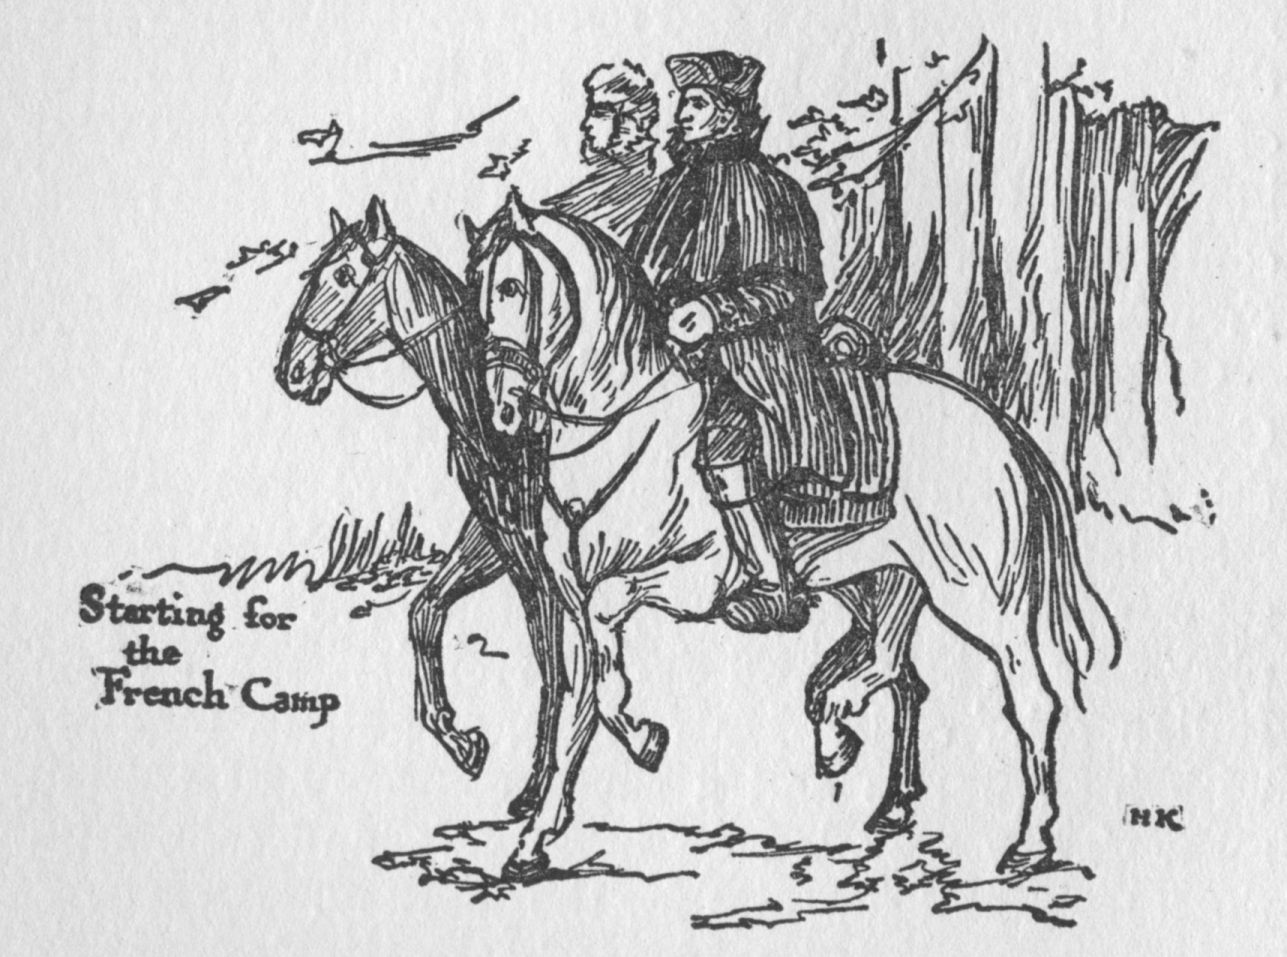 Starting for
the
French Camp
HK